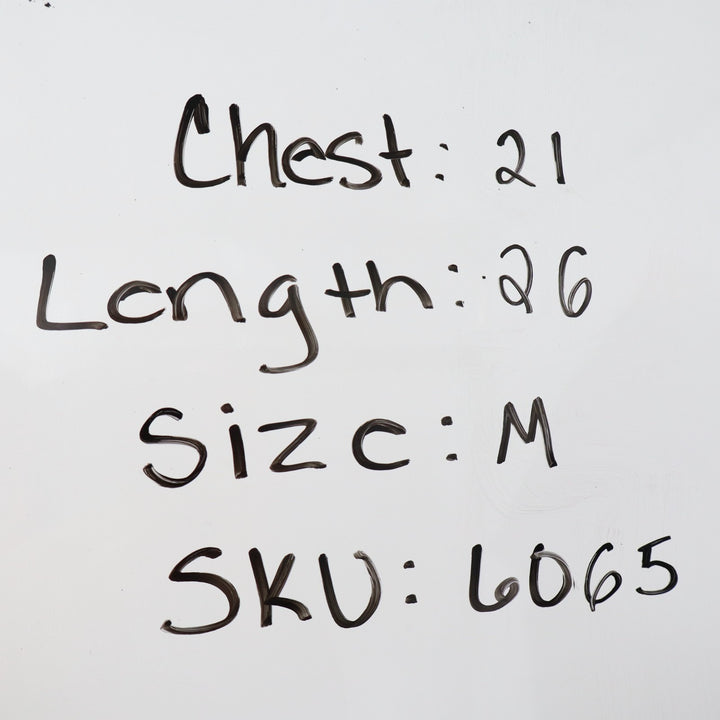 Chest: 21
Length: 26
Size: M
SKU: 6065